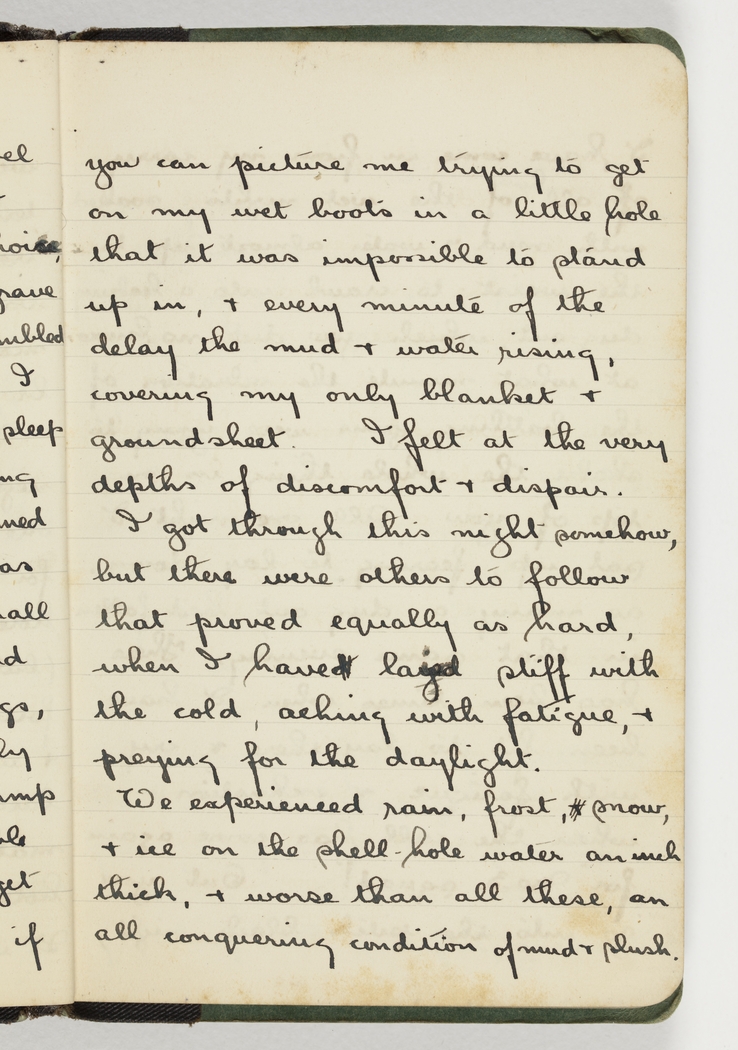 el
hoice,
rave
mbled
I
sleep
ng
ned
as
all
d
gs,
by
mp
ble
get
if
you can picture me trying to get
on my wet boots in a little hole
that it was impossible to stand
up in, + every minute of the
delay the mud + water rising,
covering my only blanket +
groundsheet. I felt at the very
depths of discomfort + dispair.
I got through this night somehow,
but there were others to follow
that proved equally as hard,
when I have laid stiff with
the cold, aching with fatigue, +
preying for the daylight.
We experienced rain, frost, snow,
+ ice on the shell-hole water an inch
thick, + worse than all these, an
all conquering condition of mud + slush.